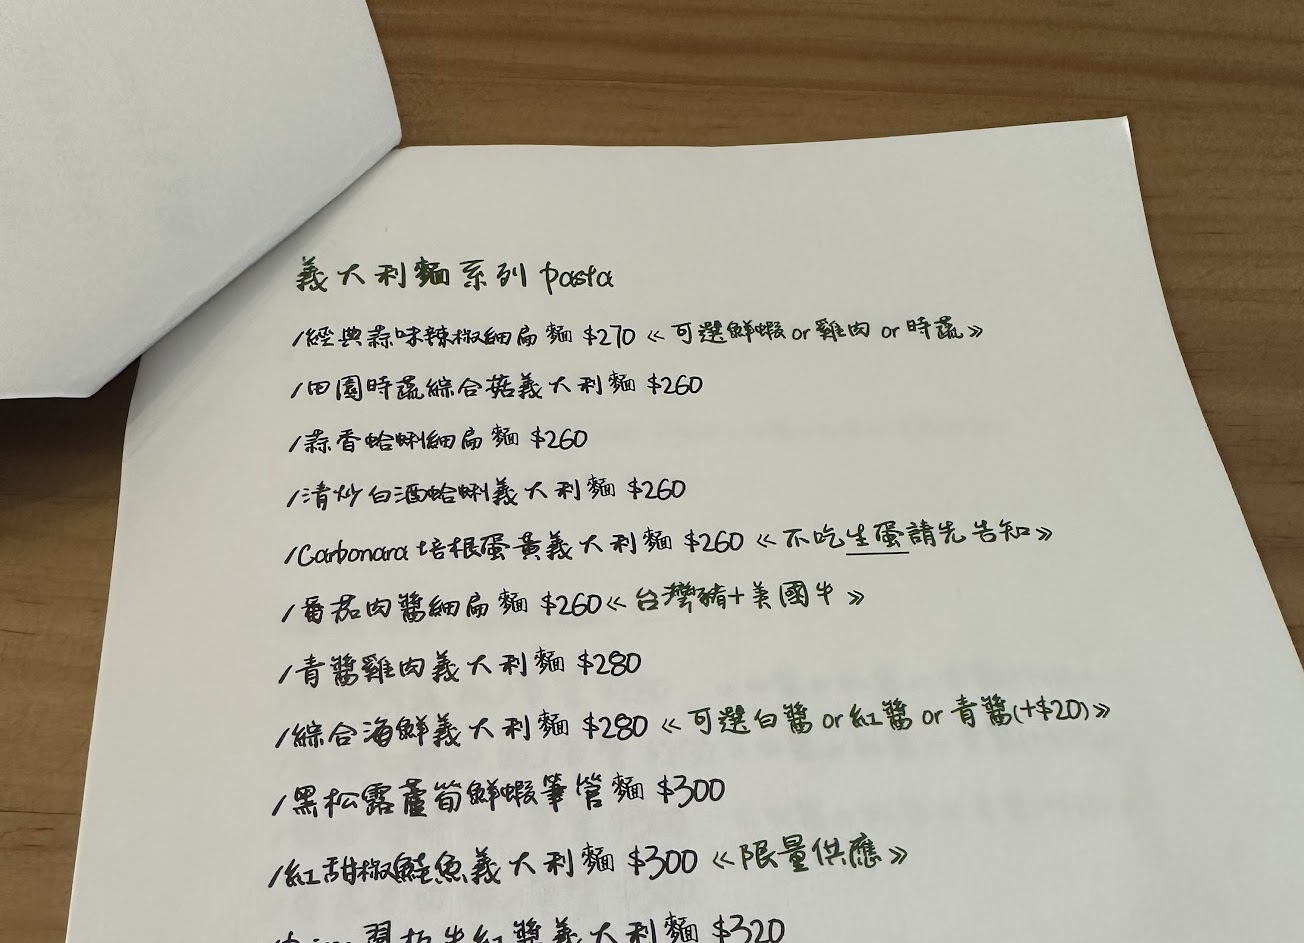 義大利麵系列 pasta
/經典蒜味辣椒細扁麵 $270 《可選鮮蝦 or 雞肉 or 時蔬》
/田園時蔬綜合菇義大利麵 $260
/蒜香蛤蜊細扁麵 $260
/清炒白酒蛤蜊義大利麵 $260
/Carbonara 培根蛋黃義大利麵 $260 《不吃生蛋請先告知》
/番茄肉醬細扁麵 $260《台灣豬+美國牛》
/青醬雞肉義大利麵 $280
/綜合海鮮義大利麵 $280 《可選白醬 or 紅醬 or 青醬(+$20)》
/黑松露蘆筍鮮蝦筆管麵 $300
/紅甜椒鮭魚義大利麵 $300 《限量供應》
牛紅醬義大利麵 $320